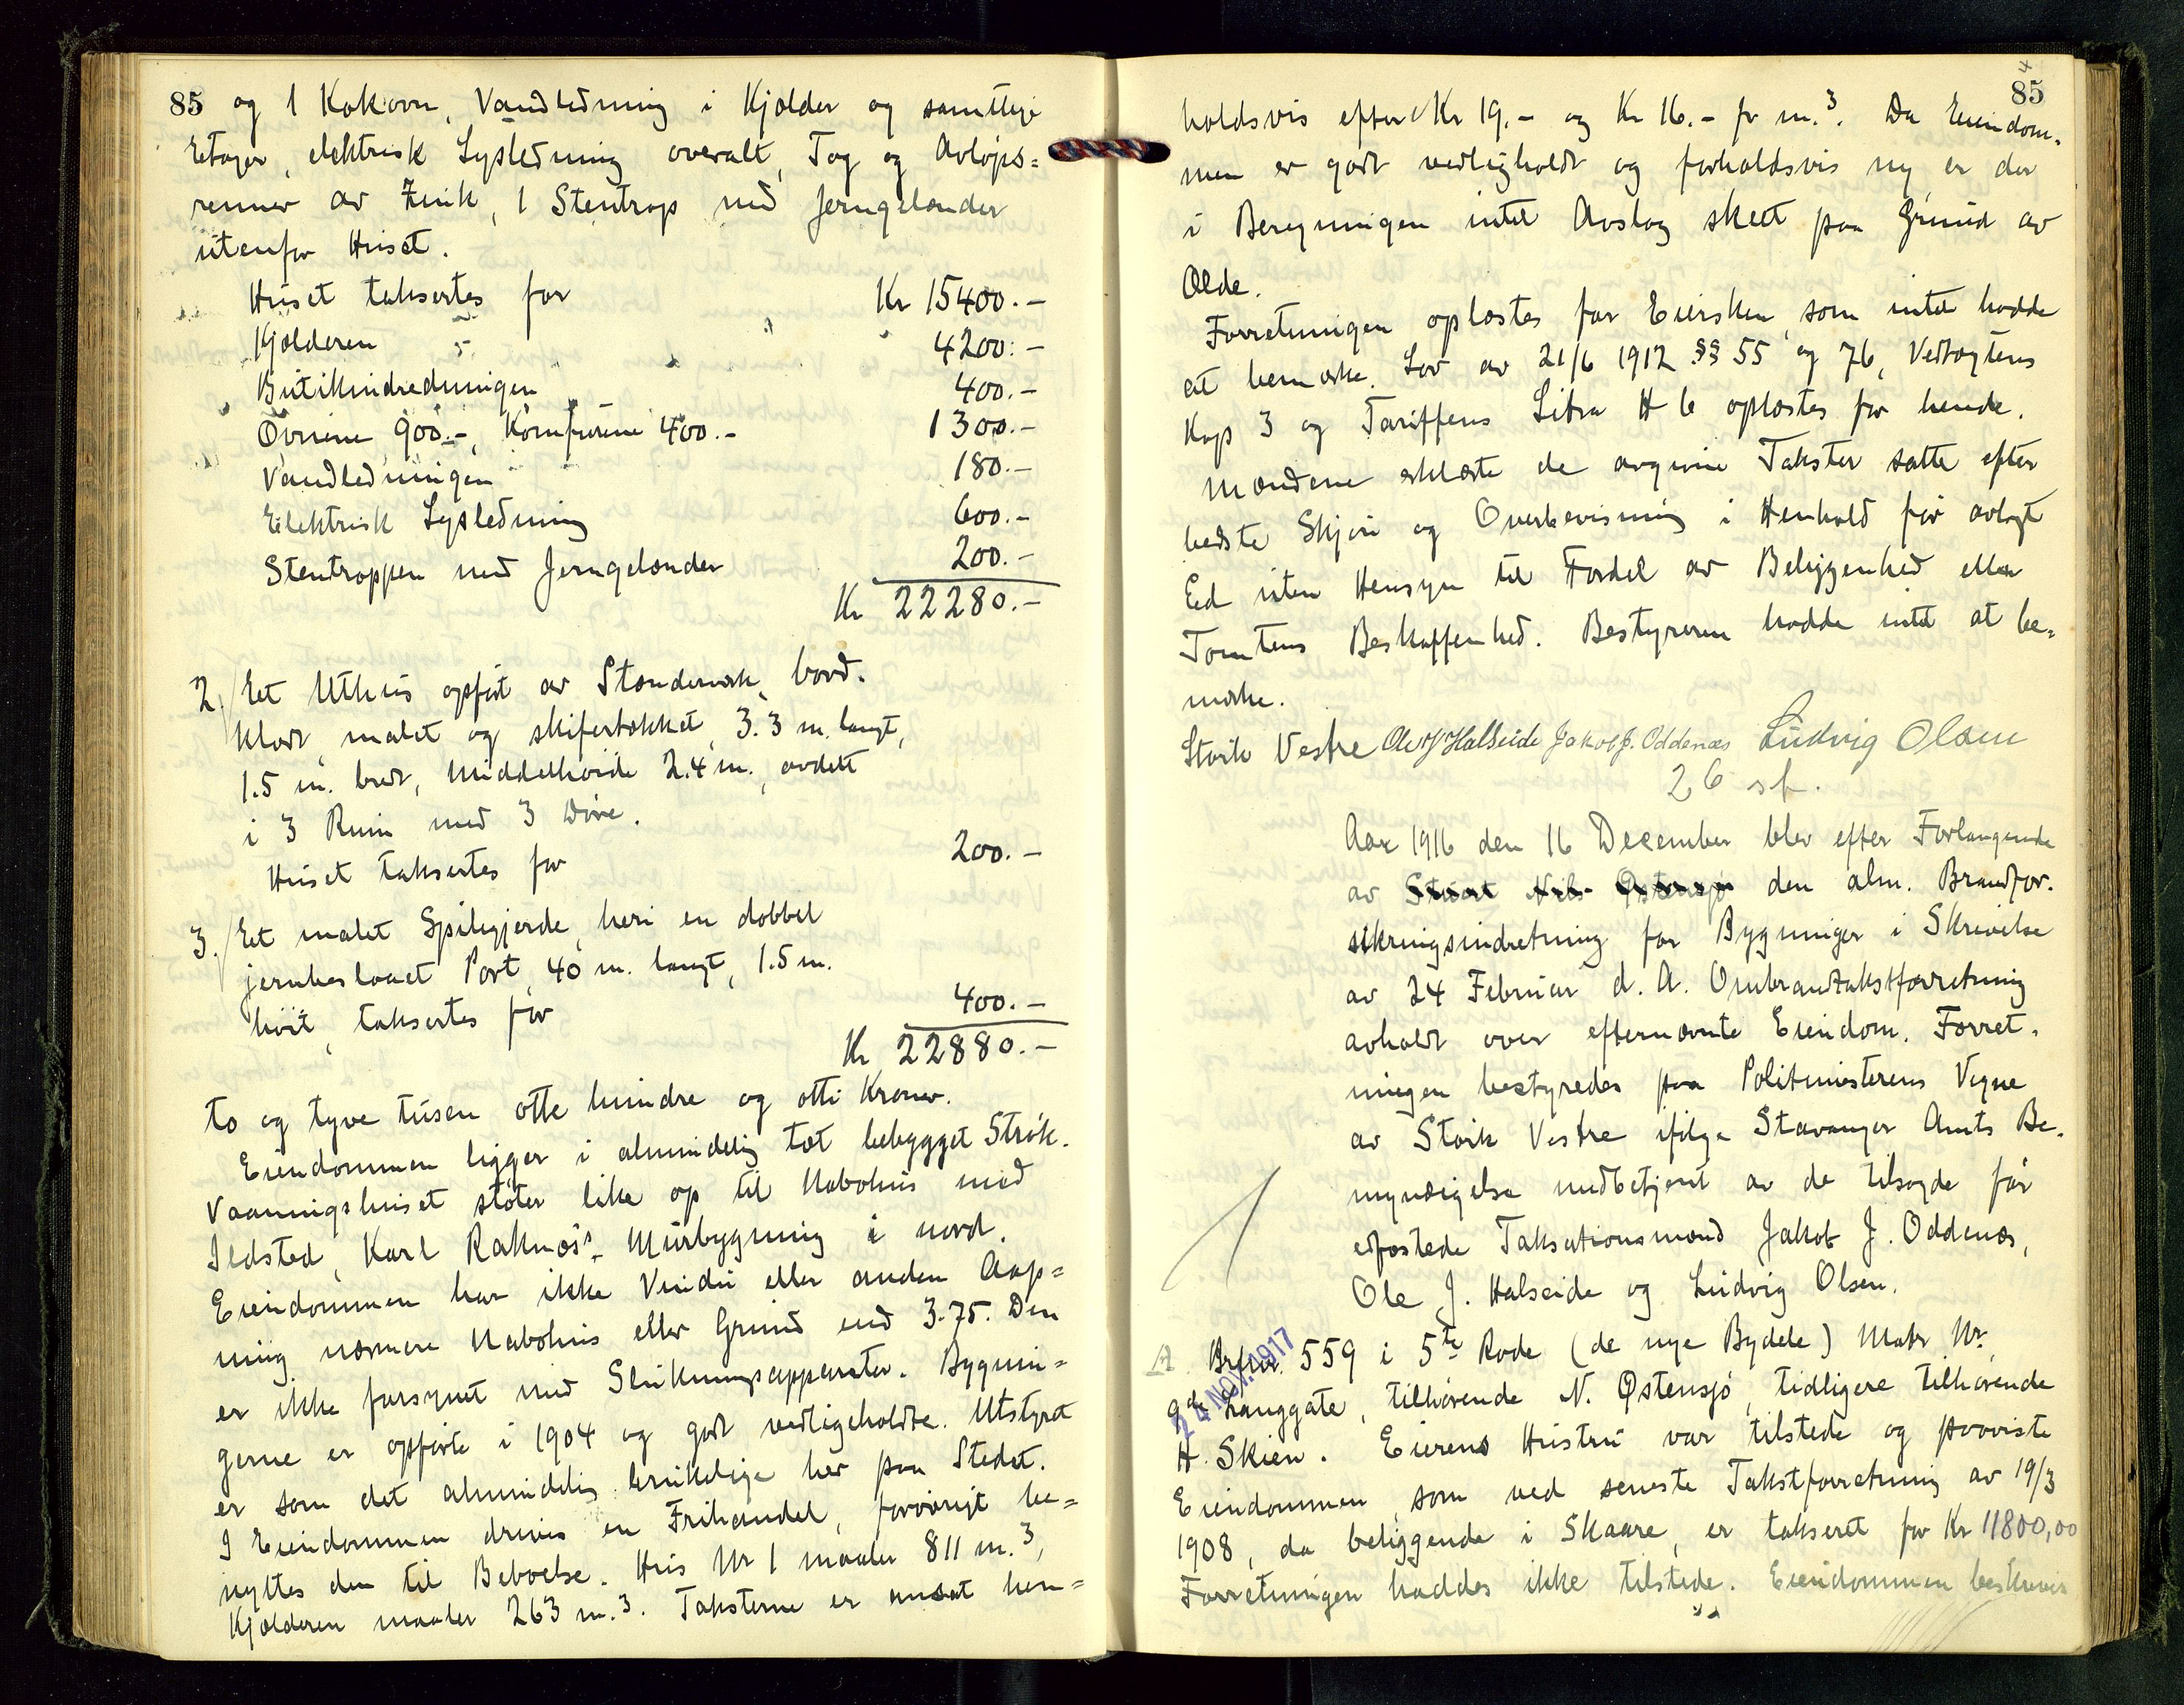 85 og 1 Kokovn, Vandledning i Kjælder og samtlige
Etager, elektrisk Lysledning overalt, Tag og Avløps=
renner av Zink, 1 Stentrap med Jerngelænder
utenfor Huset.
Huset taksertes for Kr 15400.-
Kjælderen 4200.-
Butikindredningen 400.-
Ovnene 900.-, Komfurene 400.- 1300.-
Vandledningen 180.-
Elektrisk Lysledning 600.-
Stentrappen med Jerngelænder 200.-
Kr 22280.-
2./ Et Uthus opført av Stænderverk, bord-
klædt, malet og skifertækket, 3.3 m. langt,
1.5 m. bredt, Middelhøide 2.4 m., avdelt
i 3 Rum med 3 Døre.
Huset taksertes for 200.-
3./ Et malet Spilegjerde, heri en dobbel
jernbeslaaet Port, 40 m. langt, 1.5 m.
høit, taksertes for 400.-
Kr 22880.-
to og tyve tusen otte hundre og otti Kroner.
Eiendommen ligger i almindelig tæt bebygget Strøk.
Vaaningshuset støter like op til Nabohus med
Ildsted, Karl Raknes's Murbygning i nord.
Eiendommen har ikke Vindu eller anden Aap=
ning nærmere Nabohus eller Grund end 3.75. Den
er ikke forsynet med Slukningsapparater. Bygnin=
gerne er opførte i 1904 og godt vedligeholdte. Utstyret
er som det almindelig brukelige her paa Stedet.
I Eiendommen drives en Frihandel, forøvrigt be=
nyttes den til Beboelse. Hus Nr 1 maaler 811 m.3,
Kjælderen maaler 263 m.3. Taksterne er ansat hen=
85
holdsvis efter Kr 19.- og Kr 16.- pr m.3. Da Eiendom-
men er godt vedligholdt og forholdsvis ny er der
i Beregningen intet Avslag skeet paa Grund av
Ælde.
Forretningen oplæstes for Eiersken, som intet hadde
at bemerke. Lov av 21/6 1912 §§ 55 og 76, Vedtægtens
Kap 3 og Tariffens Litra H b oplæstes for hende.
Mændene erklærte de avgivne Takster satte efter
bedste Skjøn og Overbevisning i Henhold før avlagt
Ed uten Hensyn til Fordel av Beliggenhed eller
Tomtens Beskaffenhed. Bestyreren hadde intet at be=
merke.
Stork Vestre Ole J Halseide Jakob J. Oddenæs Ludvig Olsen
26 sp.
Aar 1916 den 16 December blev efter Forlangende
av den alm. Brandfor-
sikringsindretning for Bygninger i Skrivelse
av 24 Februar d. A. Ombrandtakstforretning
avholdt over efternævnte Eiendom. Forret-
ningen bestyredes paa Politimesterens Vegne
av Stork Vestre ifølge Stavanger Amts Be-
myndigelse medbetjent av de tilsagde før
edfæstede Taksationsmænd Jakob J. Oddenæs,
Ole J. Halseide og Ludvig Olsen.
24 NOV. 1917
Brfnr. 559 i 5te Rode (de nye Bydele) Matr Nr.
9de Langgate, tilhørende N. Østensjø, tidligere tilhørende
H. Skien. Eierens Hustru var tilstede og paaviste
Eiendommen, som ved seneste Takstforretning av 19/3
1908, da beliggende i Skaare, er takseret for Kr 11800,00
Forretningen haddes ikke tilstede. Eiendommen beskrives